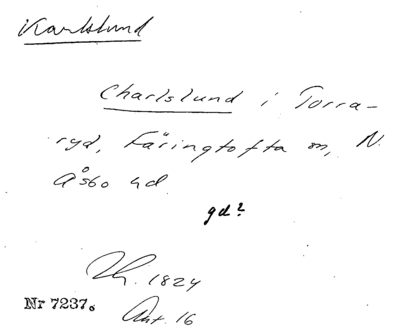 Karlslund
Charlslund i Torra-
ryd, Färingtofta sn, N.
Åsbo hd
gd?
1824
Nr 7237. Akt. 16